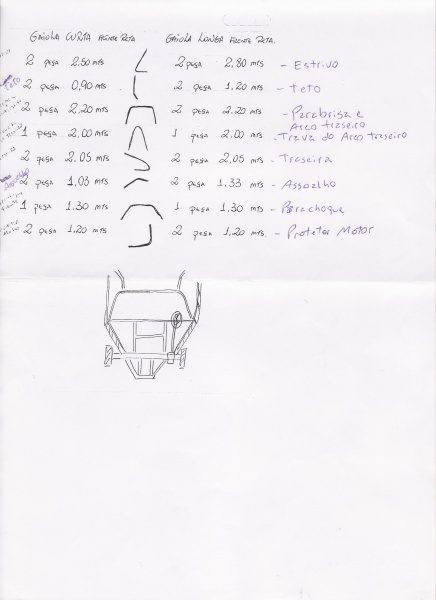 GAIOLA CURTA FRENTE RETA GAIOLA LONGA FRENTE RETA.
2 pesa 2.60 mts 2 pesa 2.80 mts - Estrivo
Teto 2 pesa 0,90 mts 2 pesa 1.20 mts - Teto
2 pesa 2.20 mts 2 pesa 2.20 mts - Parabrisa e
Arco traseiro
1 pesa 2.00 mts 1 pesa 2.00 mts - Trava do Arco traseiro
2 pesa 2.05 mts 2 pesa 2,05 mts - Traseira
Assoalho 2 pesa 1,03 mts 2 pesa 1.33 mts - Assoalho
1 pesa 1.30 mts 1 pesa 1.30 mts - Parachoque
2 pesa 1.20 mts 2 pesa 1.20 mts. - Protetor Motor